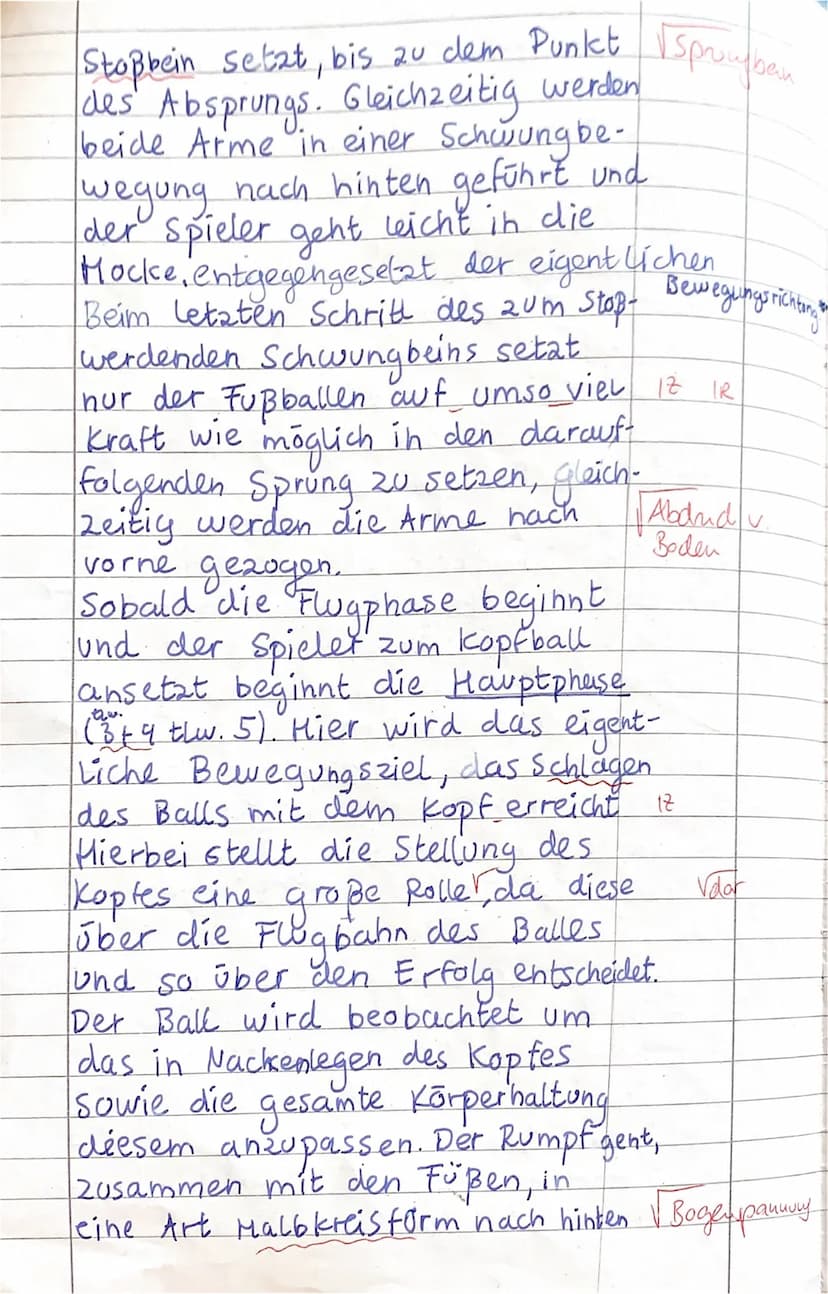 Stoßbein setzt, bis zu dem Punkt √Sprungbein
des Absprungs. Gleichzeitig werden
beide Arme in einer Schwungbe-
wegung nach hinten geführt und
der Spieler geht leicht in die
Hocke, entgegengesetzt der eigentlichen
Bewegungsrichtung
Beim letzten Schritt des zum Stoß-
werdenden Schwungbeins setzt
nur der Fußballen auf umso viel IZ IR
Kraft wie möglich in den darauf-
folgenden Sprung zu setzen, gleich-
zeitig werden die Arme nach √Abdruck v
Boden
vorne gezogen.
Sobald die Flugphase beginnt
und der Spieler zum Kopfball
ansetzt beginnt die Hauptphase
tlw.
(3+4 tlw. 5). Hier wird das eigent-
liche Bewegungsziel, das Schlagen
des Balls mit dem Kopf erreicht IZ
Hierbei stellt die Stellung des
Kopfes eine große Rolle√, da diese √dar
über die Flugbahn des Balles
und so über den Erfolg entscheidet.
Der Ball wird beobachtet um
das in Nackenlegen des Kopfes
sowie die gesamte Körperhaltung
diesem anzupassen. Der Rumpf geht,
zusammen mit den Füßen, in
eine Art Halbkreisform nach hinten √Bogenspannung